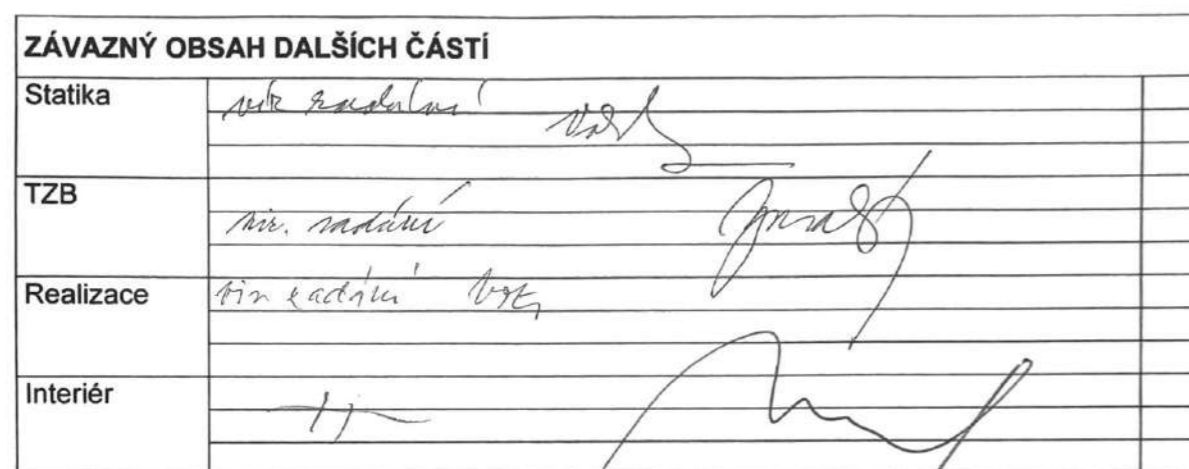 ZÁVAZNÝ OBSAH DALŠÍCH ČÁSTÍ
Statika
viz zadání
TZB
viz. zadání
Realizace
viz zadání
Interiér